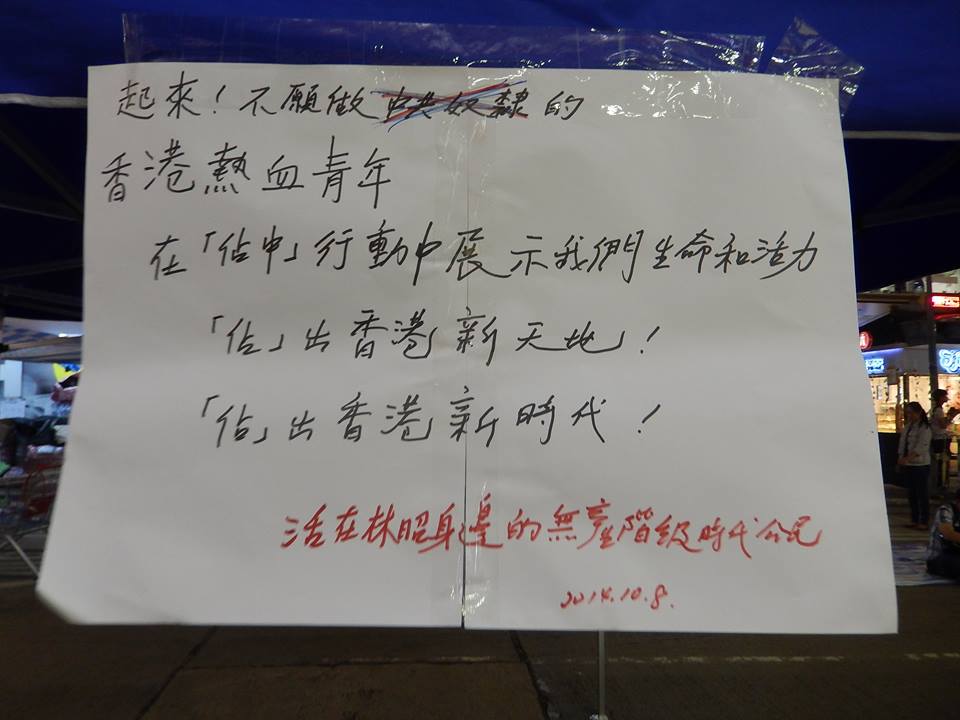 起來！不願做中共奴隸的
香港熱血青年
在「佔中」行動中展示我們生命和活力
「佔」出香港新天地！
「佔」出香港新時代！
活在林昭身邊的無產階級時代公民
2014.10.8.